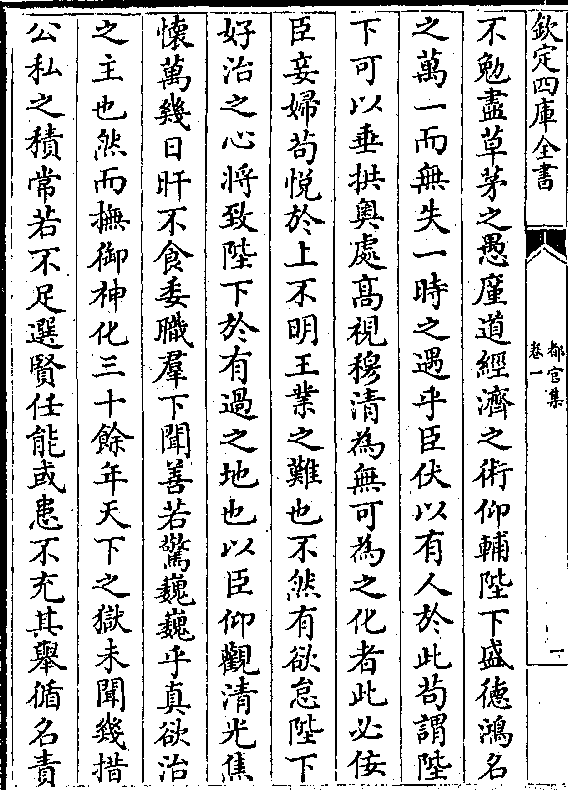 欽定四庫全書
都官集
卷一
一
不勉盡草茅之愚廑道經濟之術仰輔陛下盛德鴻名
之萬一而無失一時之遇乎臣伏以有人於此苟謂陛
下可以垂拱奥處高視穆清為無可為之化者此必佞
臣妾婦苟悦於上不明王業之難也不然有欲怠陛下
好治之心將致陛下於有過之地也以臣仰觀清光焦
懐萬幾日旰不食委職羣下聞善若驚巍巍乎真欲治
之主也然而撫御神化三十餘年天下之獄未聞幾措
公私之積常若不足選賢任能或患不充其舉循名責